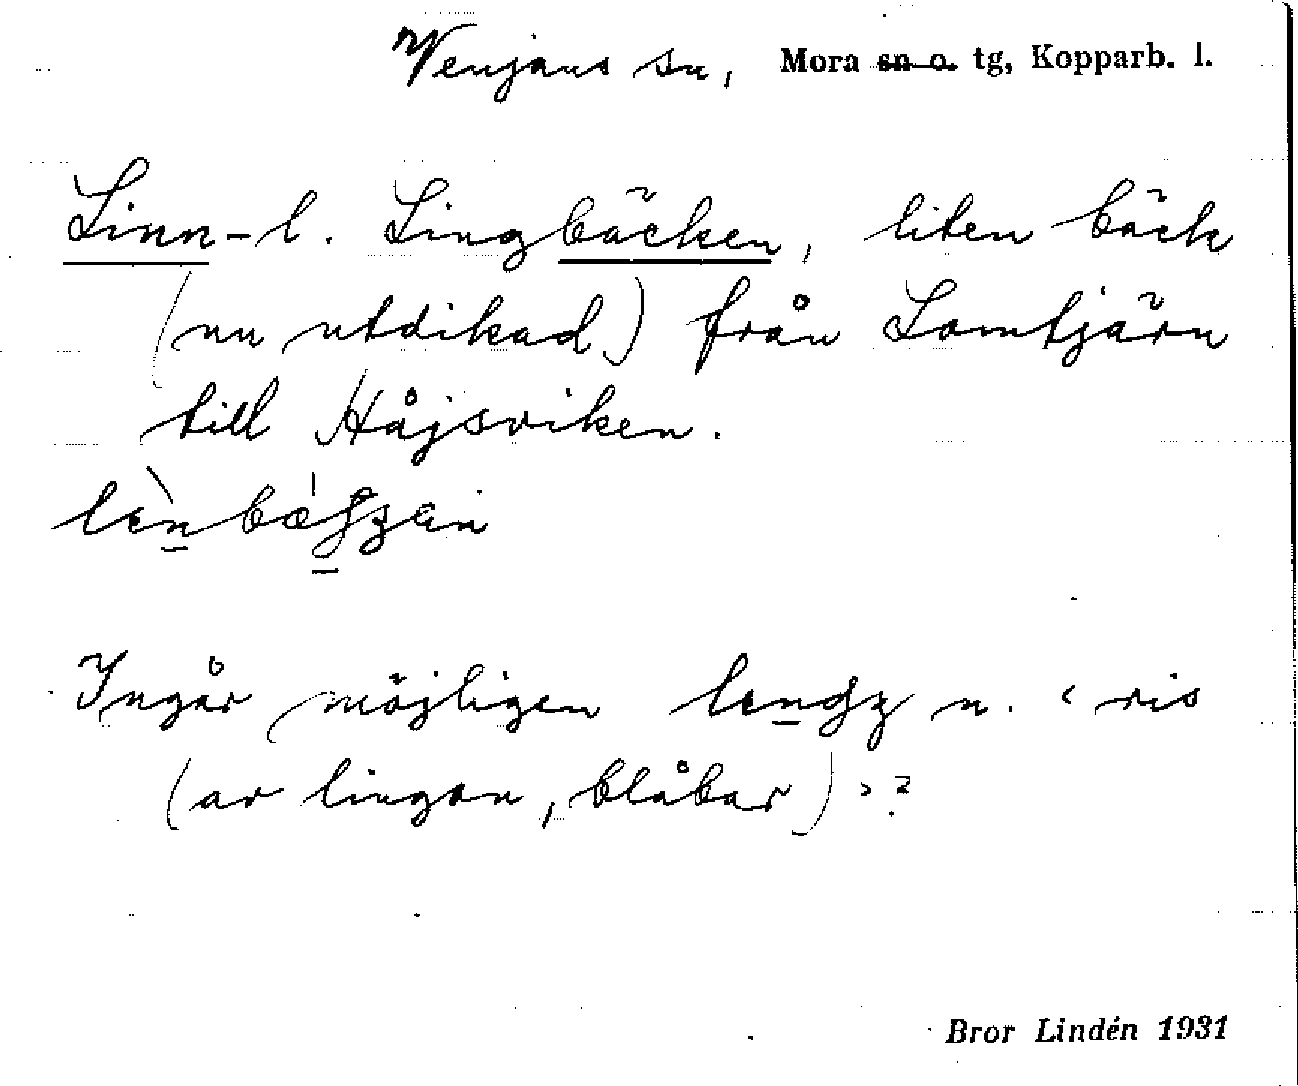 Venjans sn, Mora sn o. tg, Kopparb. l.
Linn- l. Lingbäcken, liten bäck
(nu utdikad) från Lomtjärn
till Håjsviken.
Ingår möjligen n. ‹ ris
(av lingon, blåbär) › ?
Bror Lindén 1931